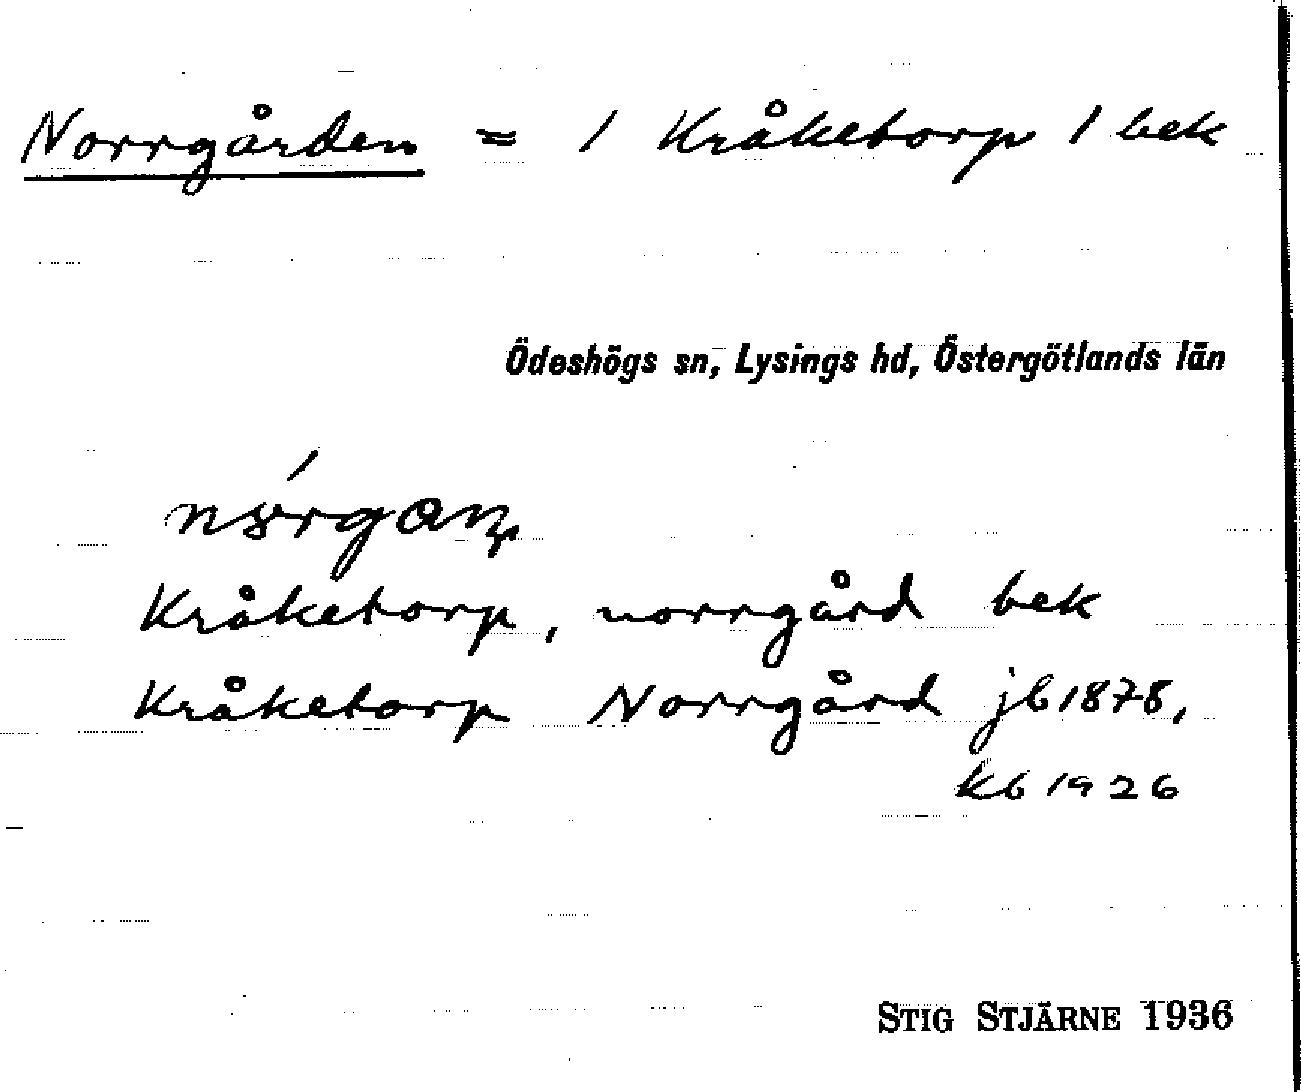 Norrgården = / Kråketorp / bek
Ödeshögs sn, Lysings hd, Östergötlands län
Kråketorp, norrgård bek
Kråketorp Norrgård jb 1878,
kb 1926
STIG STJÄRNE 1936